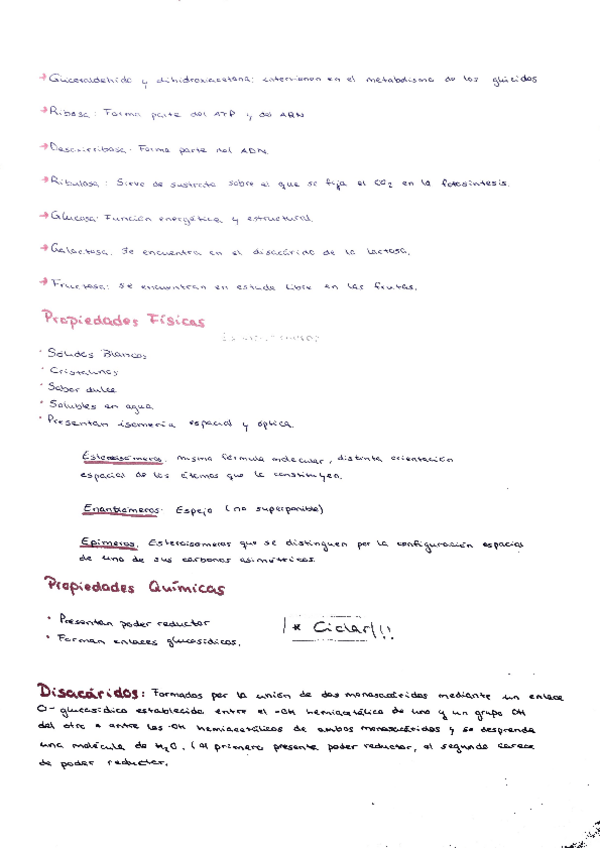 → Gliceraldehido y dihidroxiacetona: intervienen en el metabolismo de los glúcidos
→ Ribosa: Forma parte del ATP y del ARN
→ Desoxirribosa: Forma parte del ADN.
→ Ribulosa: Sirve de sustrato sobre el que se fija el CO₂ en la fotosíntesis.
→ Glucosa: Función energética y estructural.
→ Galactosa: Se encuentra en el disacárido de la lactosa.
→ Fructosa: Se encuentran en estado libre en las frutas.
Propiedades Físicas
· Sólidos Blancos
· Cristalinos
· Sabor dulce
· Solubles en agua
· Presentan isomería espacial y óptica
Estereoisómeros: misma fórmula molecular, distinta orientación
espacial de los átomos que la constituyen.
Enantiómeros: Espejo (no superponible)
Epímeros: Estereoisómeros que se distinguen por la configuración espacial
de uno de sus carbonos asimétricos.
Propiedades Químicas
· Presentan poder reductor
· Forman enlaces glucosídicos.
* Ciclar!!!
Disacáridos: Formados por la unión de dos monosacáridos mediante un enlace
O-glucosídico establecido entre el -OH hemiacetálico de uno y un grupo OH
del otro o entre los -OH hemiacetálicos de ambos monosacáridos y se desprende
una molécula de H₂O. (el primero presenta poder reductor, el segundo carece
de poder reductor.